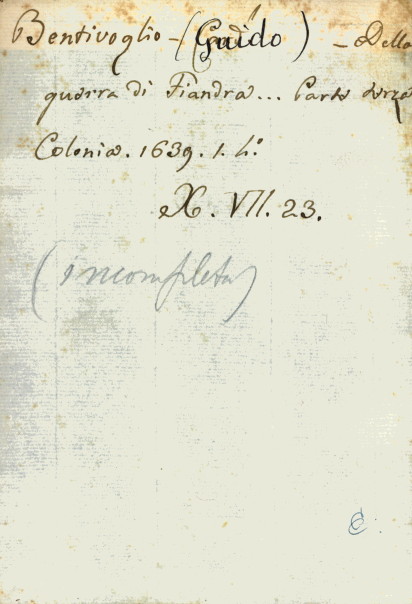 Bentivoglio - (Guido) - Della
guerra di Fiandra... Parte terza
Colonia. 1639. 1. 4.º
X. VII. 23.
(incompleta)